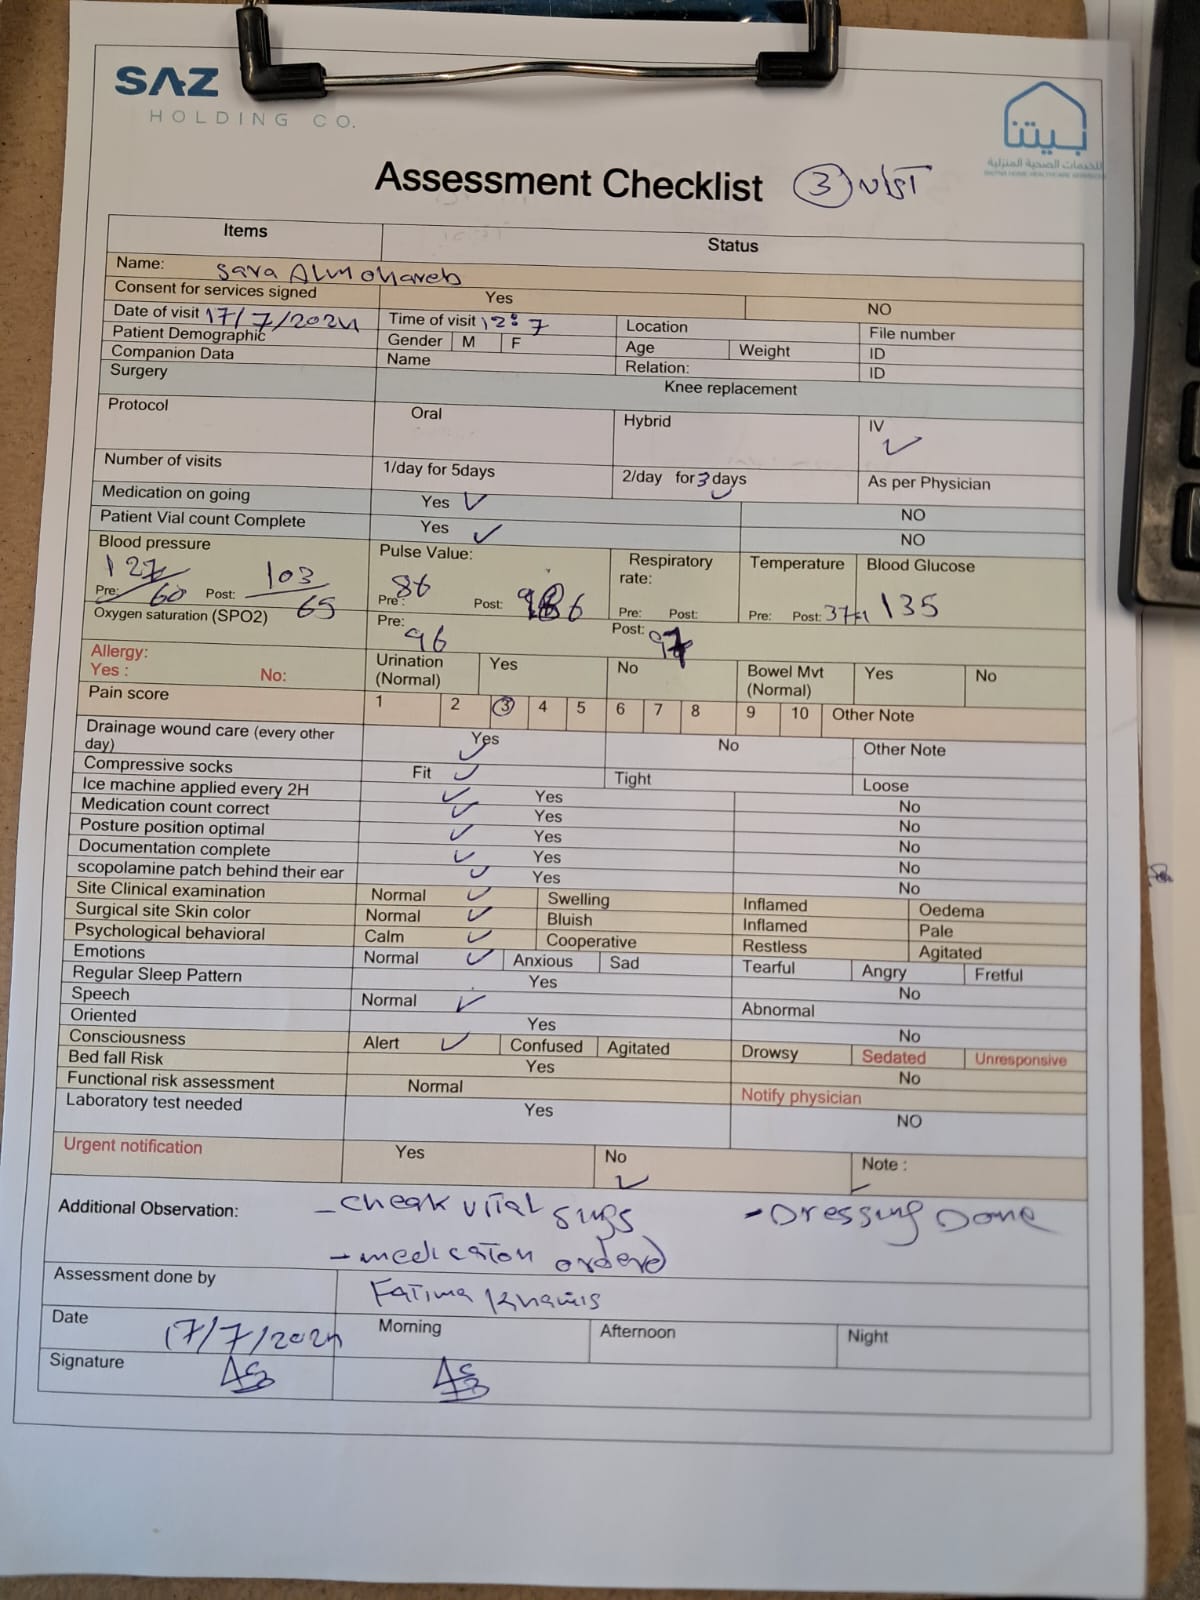 SAZ
HOLDING CO.
بيتنا
للخدمات الصحية المنزلية
Assessment Checklist (3) visit
Items Status
Name: Sara Almohareb
Consent for services signed Yes NO
Date of visit 17/7/2024 Time of visit 12:7 Location File number
Patient Demographic Gender M F Age Weight ID
Companion Data Name Relation: ID
Surgery Knee replacement
Protocol Oral Hybrid IV ✓
Number of visits 1/day for 5days 2/day for 3 days ✓ As per Physician
Medication on going Yes ✓ NO
Patient Vial count Complete Yes ✓ NO
Blood pressure Pre: 127/60 Post: 103/65 Pulse Value: Pre: 86 Post: 86 Respiratory rate: Pre: Post: Temperature Pre: Post: 37 Blood Glucose 135
Oxygen saturation (SPO2) Pre: 96 Post: 97
Allergy: Yes : No: Urination (Normal) Yes No Bowel Mvt (Normal) Yes No
Pain score 1 2 (3) 4 5 6 7 8 9 10 Other Note
Drainage wound care (every other day) Yes ✓ No Other Note
Compressive socks Fit ✓ Tight Loose
Ice machine applied every 2H ✓ Yes No
Medication count correct ✓ Yes No
Posture position optimal ✓ Yes No
Documentation complete ✓ Yes No
scopolamine patch behind their ear ✓ Yes No
Site Clinical examination Normal ✓ Swelling Inflamed Oedema
Surgical site Skin color Normal ✓ Bluish Inflamed Pale
Psychological behavioral Calm ✓ Cooperative Restless Agitated
Emotions Normal ✓ Anxious Sad Tearful Angry Fretful
Regular Sleep Pattern Yes No
Speech Normal ✓ Abnormal
Oriented Yes No
Consciousness Alert ✓ Confused Agitated Drowsy Sedated Unresponsive
Bed fall Risk Yes No
Functional risk assessment Normal Notify physician
Laboratory test needed Yes NO
Urgent notification Yes No ✓ Note :
Additional Observation: - cheak vital sings - Dressing Done
- medication ordered
Assessment done by Fatima Khamis
Date 17/7/2024 Morning Afternoon Night
Signature